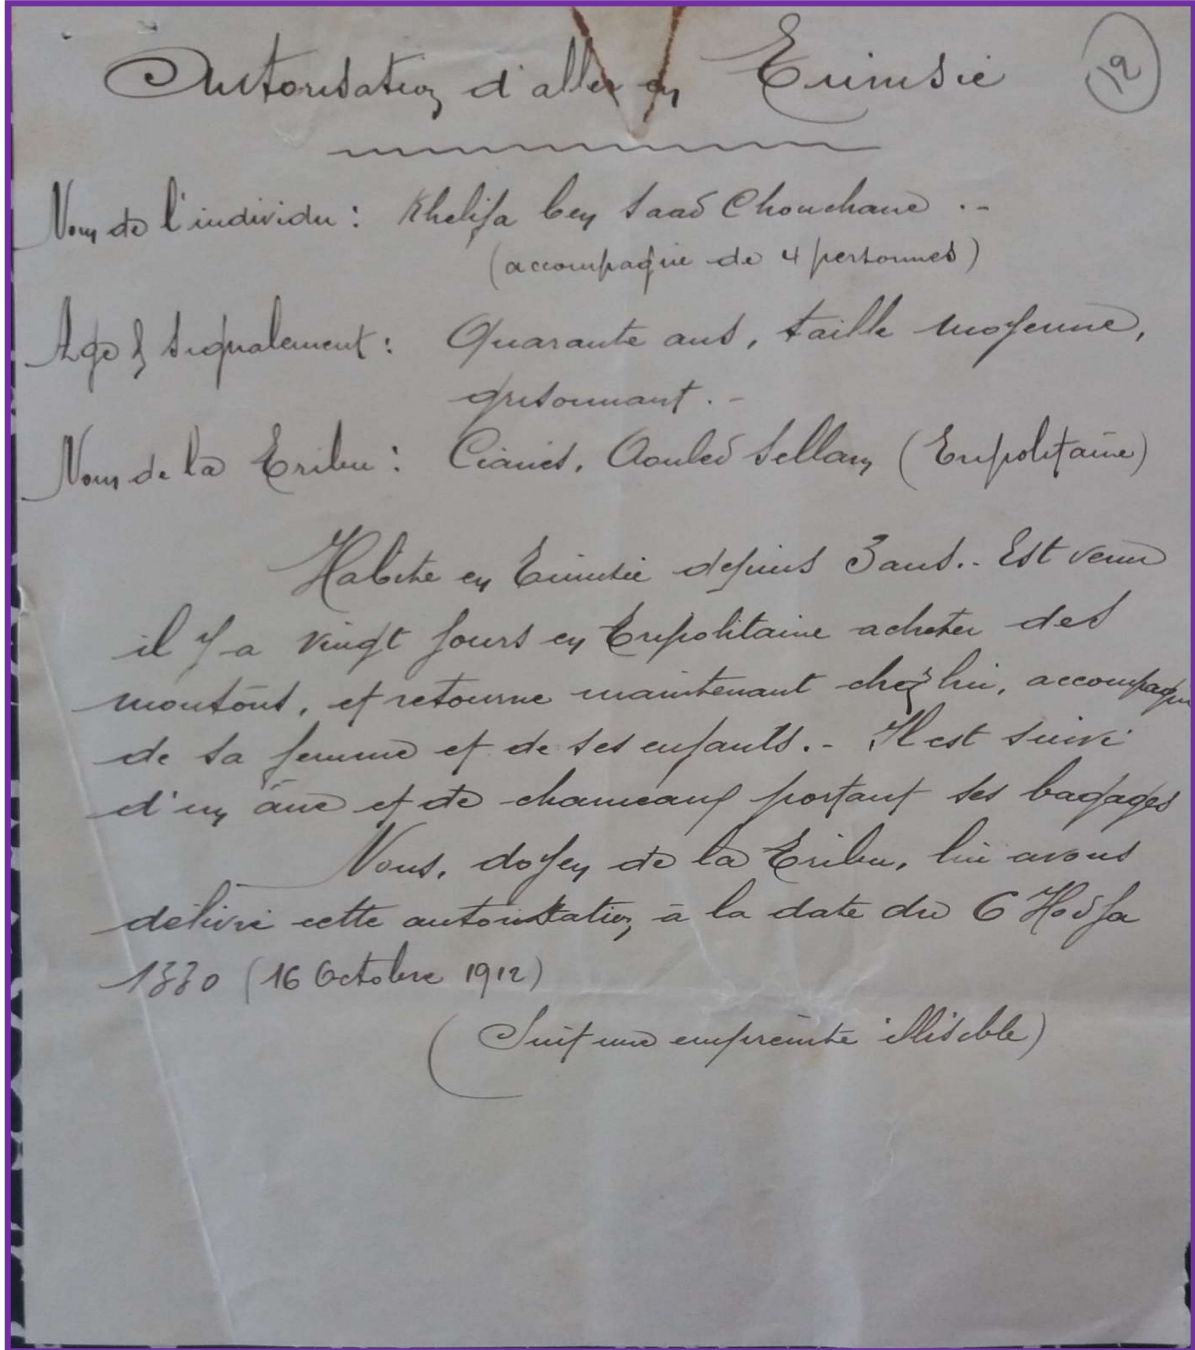 Autorisation d'aller en Tunisie
12
Nom de l'individu : Khelifa ben Saad Chouchane . -
(accompagné de 4 personnes)
Age & signalement : Quarante ans, taille moyenne,
grisonnant . -
Nom de la Tribu : Aouled Sellam (Tripolitaine)
Habite en Tunisie depuis 3 ans. - Est venu
il y a vingt jours en Tripolitaine acheter des
moutons, et retourne maintenant chez lui, accompagné
de sa femme et de ses enfants. - Il est suivi
d'un âne et de chameaux portant ses bagages
Nous, doyen de la Tribu, lui avons
délivré cette autorisation, à la date du 6 Hodja
1330 (16 Octobre 1912)
(Suit une empreinte illisible)